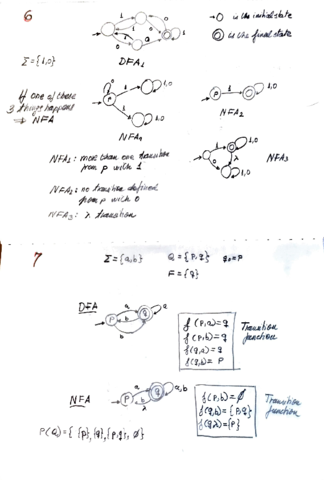 6
→O is the initial state
◎ is the final state
Σ = {1,0}
DFA₁
If one of these
3 things happens
⇒ NFA
NFA₁
NFA₂
NFA₃
NFA₁: more than one transition
from p with 1
NFA₂: no transition defined
from p with 0
NFA₃: λ transition
7
Σ = {a,b} Q = {p,q} q₀ = p
F = {q}
DFA
f(p,a) = q
f(p,b) = q
f(q,a) = q
f(q,b) = p
Transition
function
NFA
f(p,b) = ∅
f(q,b) = {p,q}
f(q,λ) = {p}
Transition
function
P(Q) = { {p}, {q}, {p,q}, ∅ }